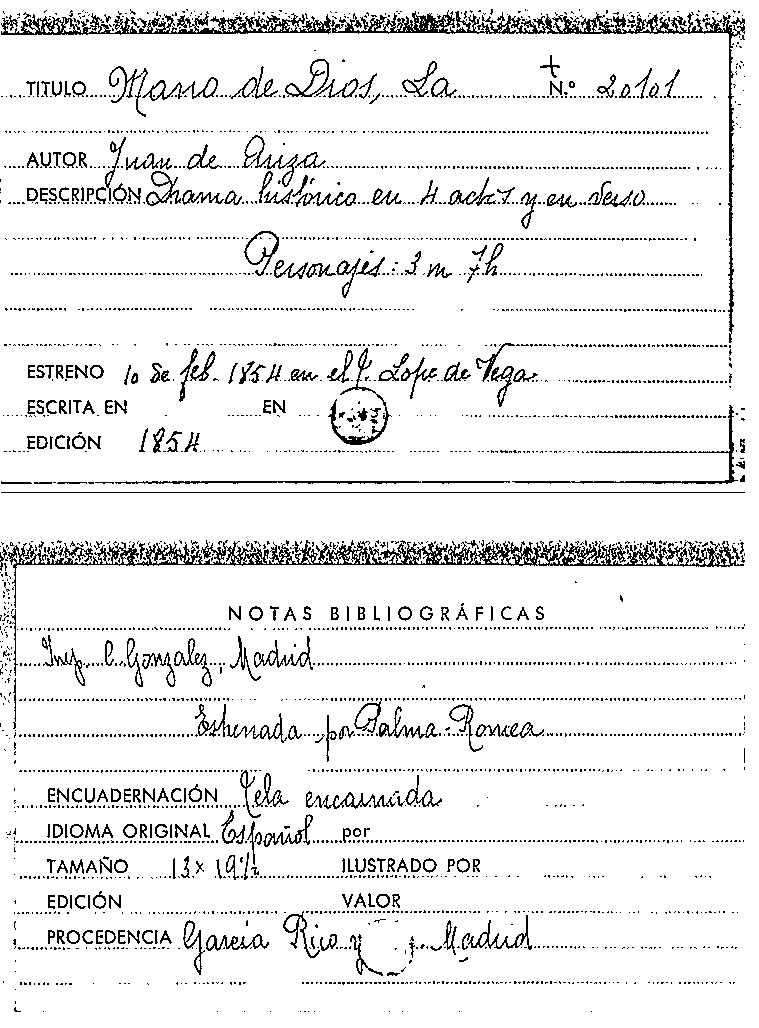 TITULO Mano de Dios, La + N.º 20101
AUTOR Juan de Ariza
DESCRIPCIÓN Drama histórico en 4 actos y en verso
Personajes: 3 m 7h
ESTRENO 10 de feb. 1854 en el T. Lope de Vega
ESCRITA EN EN
EDICIÓN 1854
NOTAS BIBLIOGRÁFICAS
Imp. C. Gonzalez, Madrid
Estrenada por Palma-Romea
ENCUADERNACIÓN Tela encarnada
IDIOMA ORIGINAL Español por
TAMAÑO 13 x 19½ ILUSTRADO POR
EDICIÓN VALOR
PROCEDENCIA García Rico y Madrid